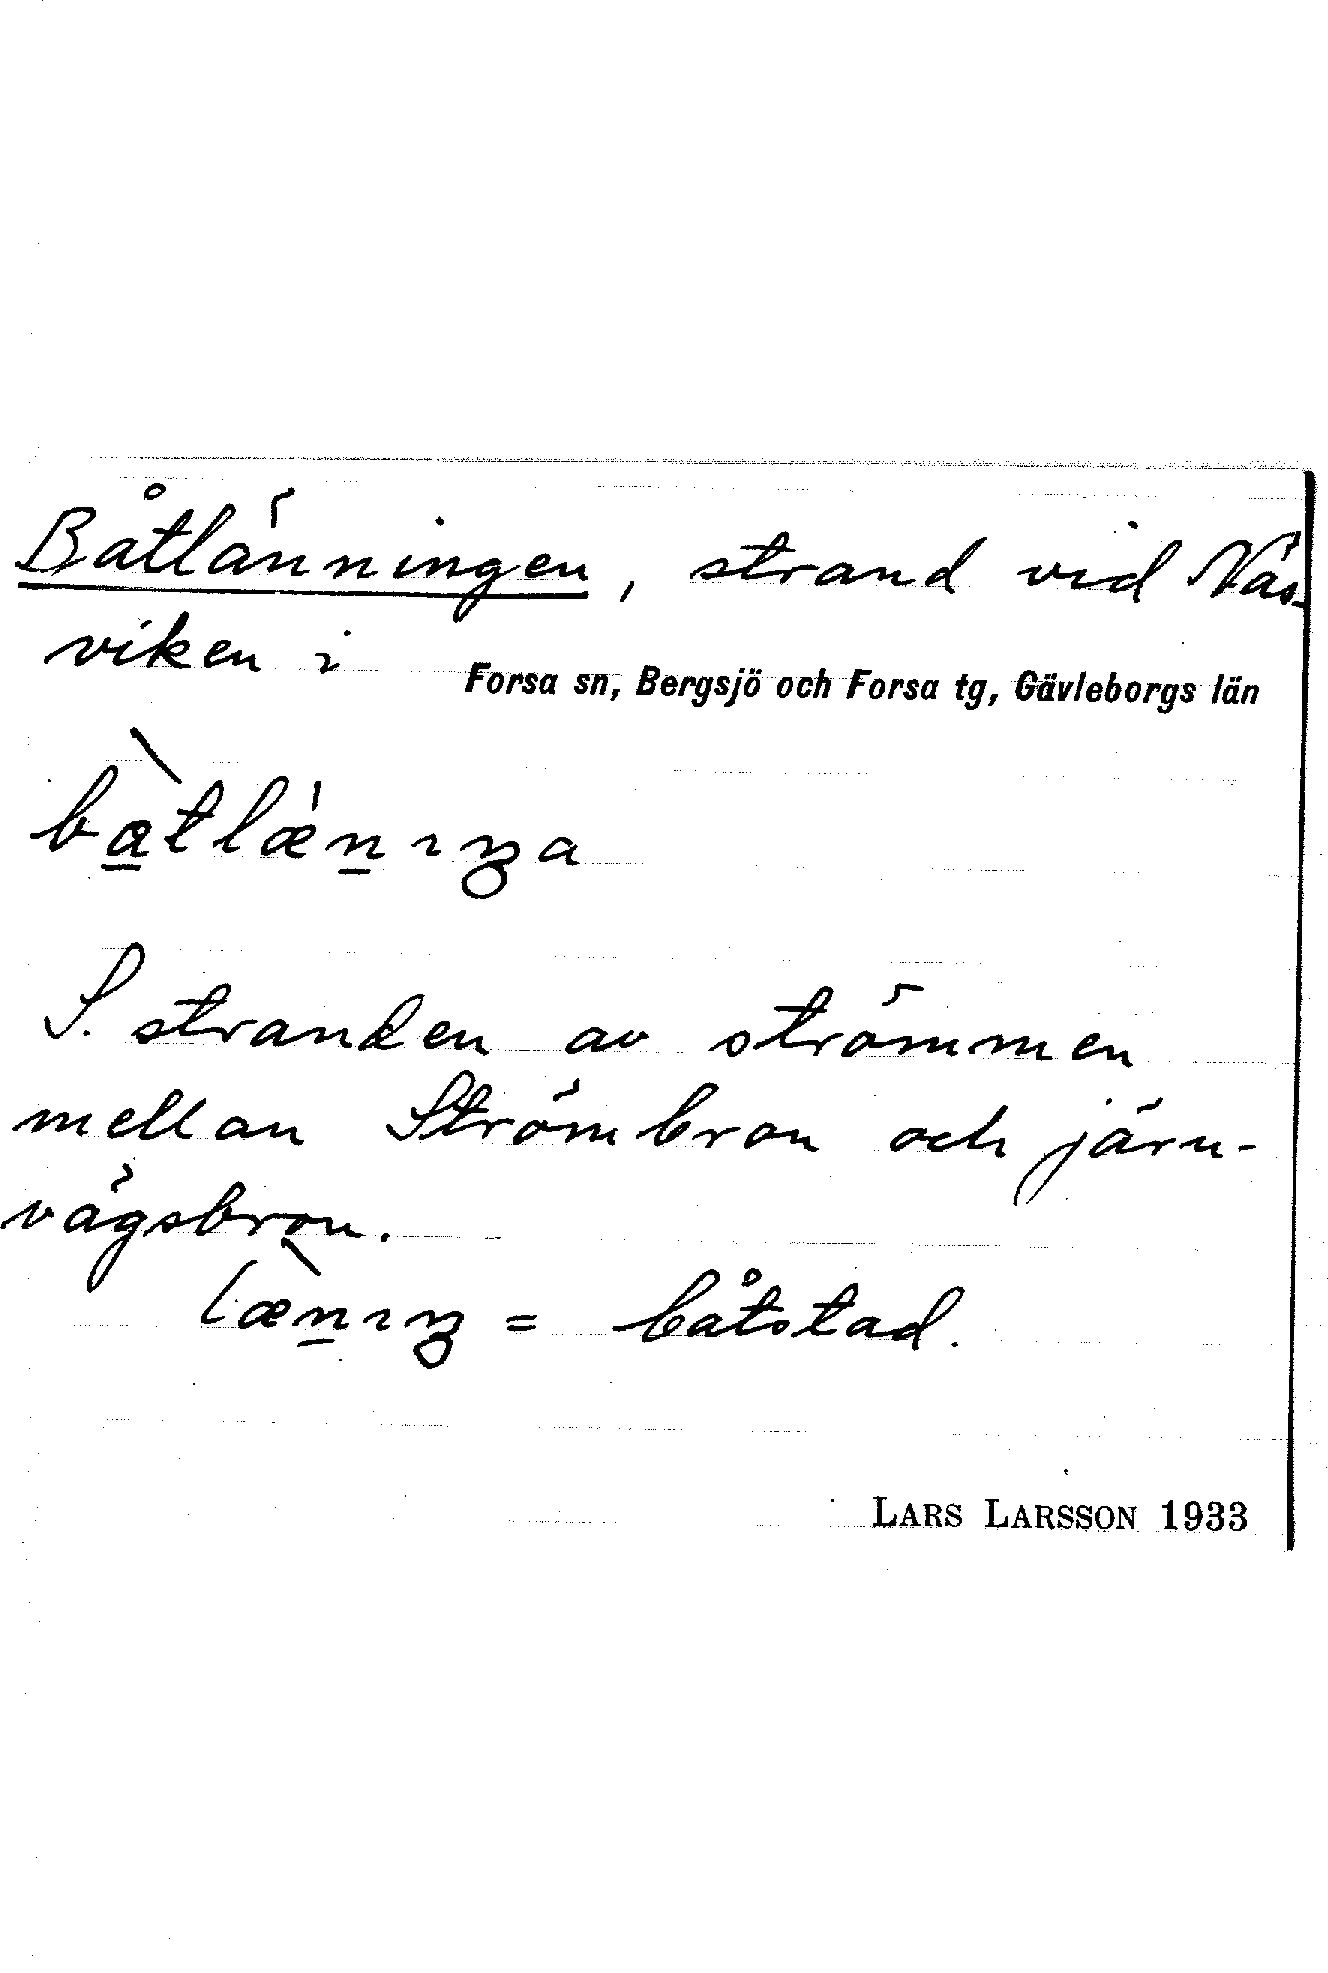 Båtlänningen, strand vid Näs-
viken i Forsa sn, Bergsjö och Forsa tg, Gävleborgs län
bàt̠lǽn̠ıŋa
S. stranden av strömmen
mellan Strömbron och järn-
vägsbron.
læ̀n̠ıŋ = båtstad.
LARS LARSSON 1933